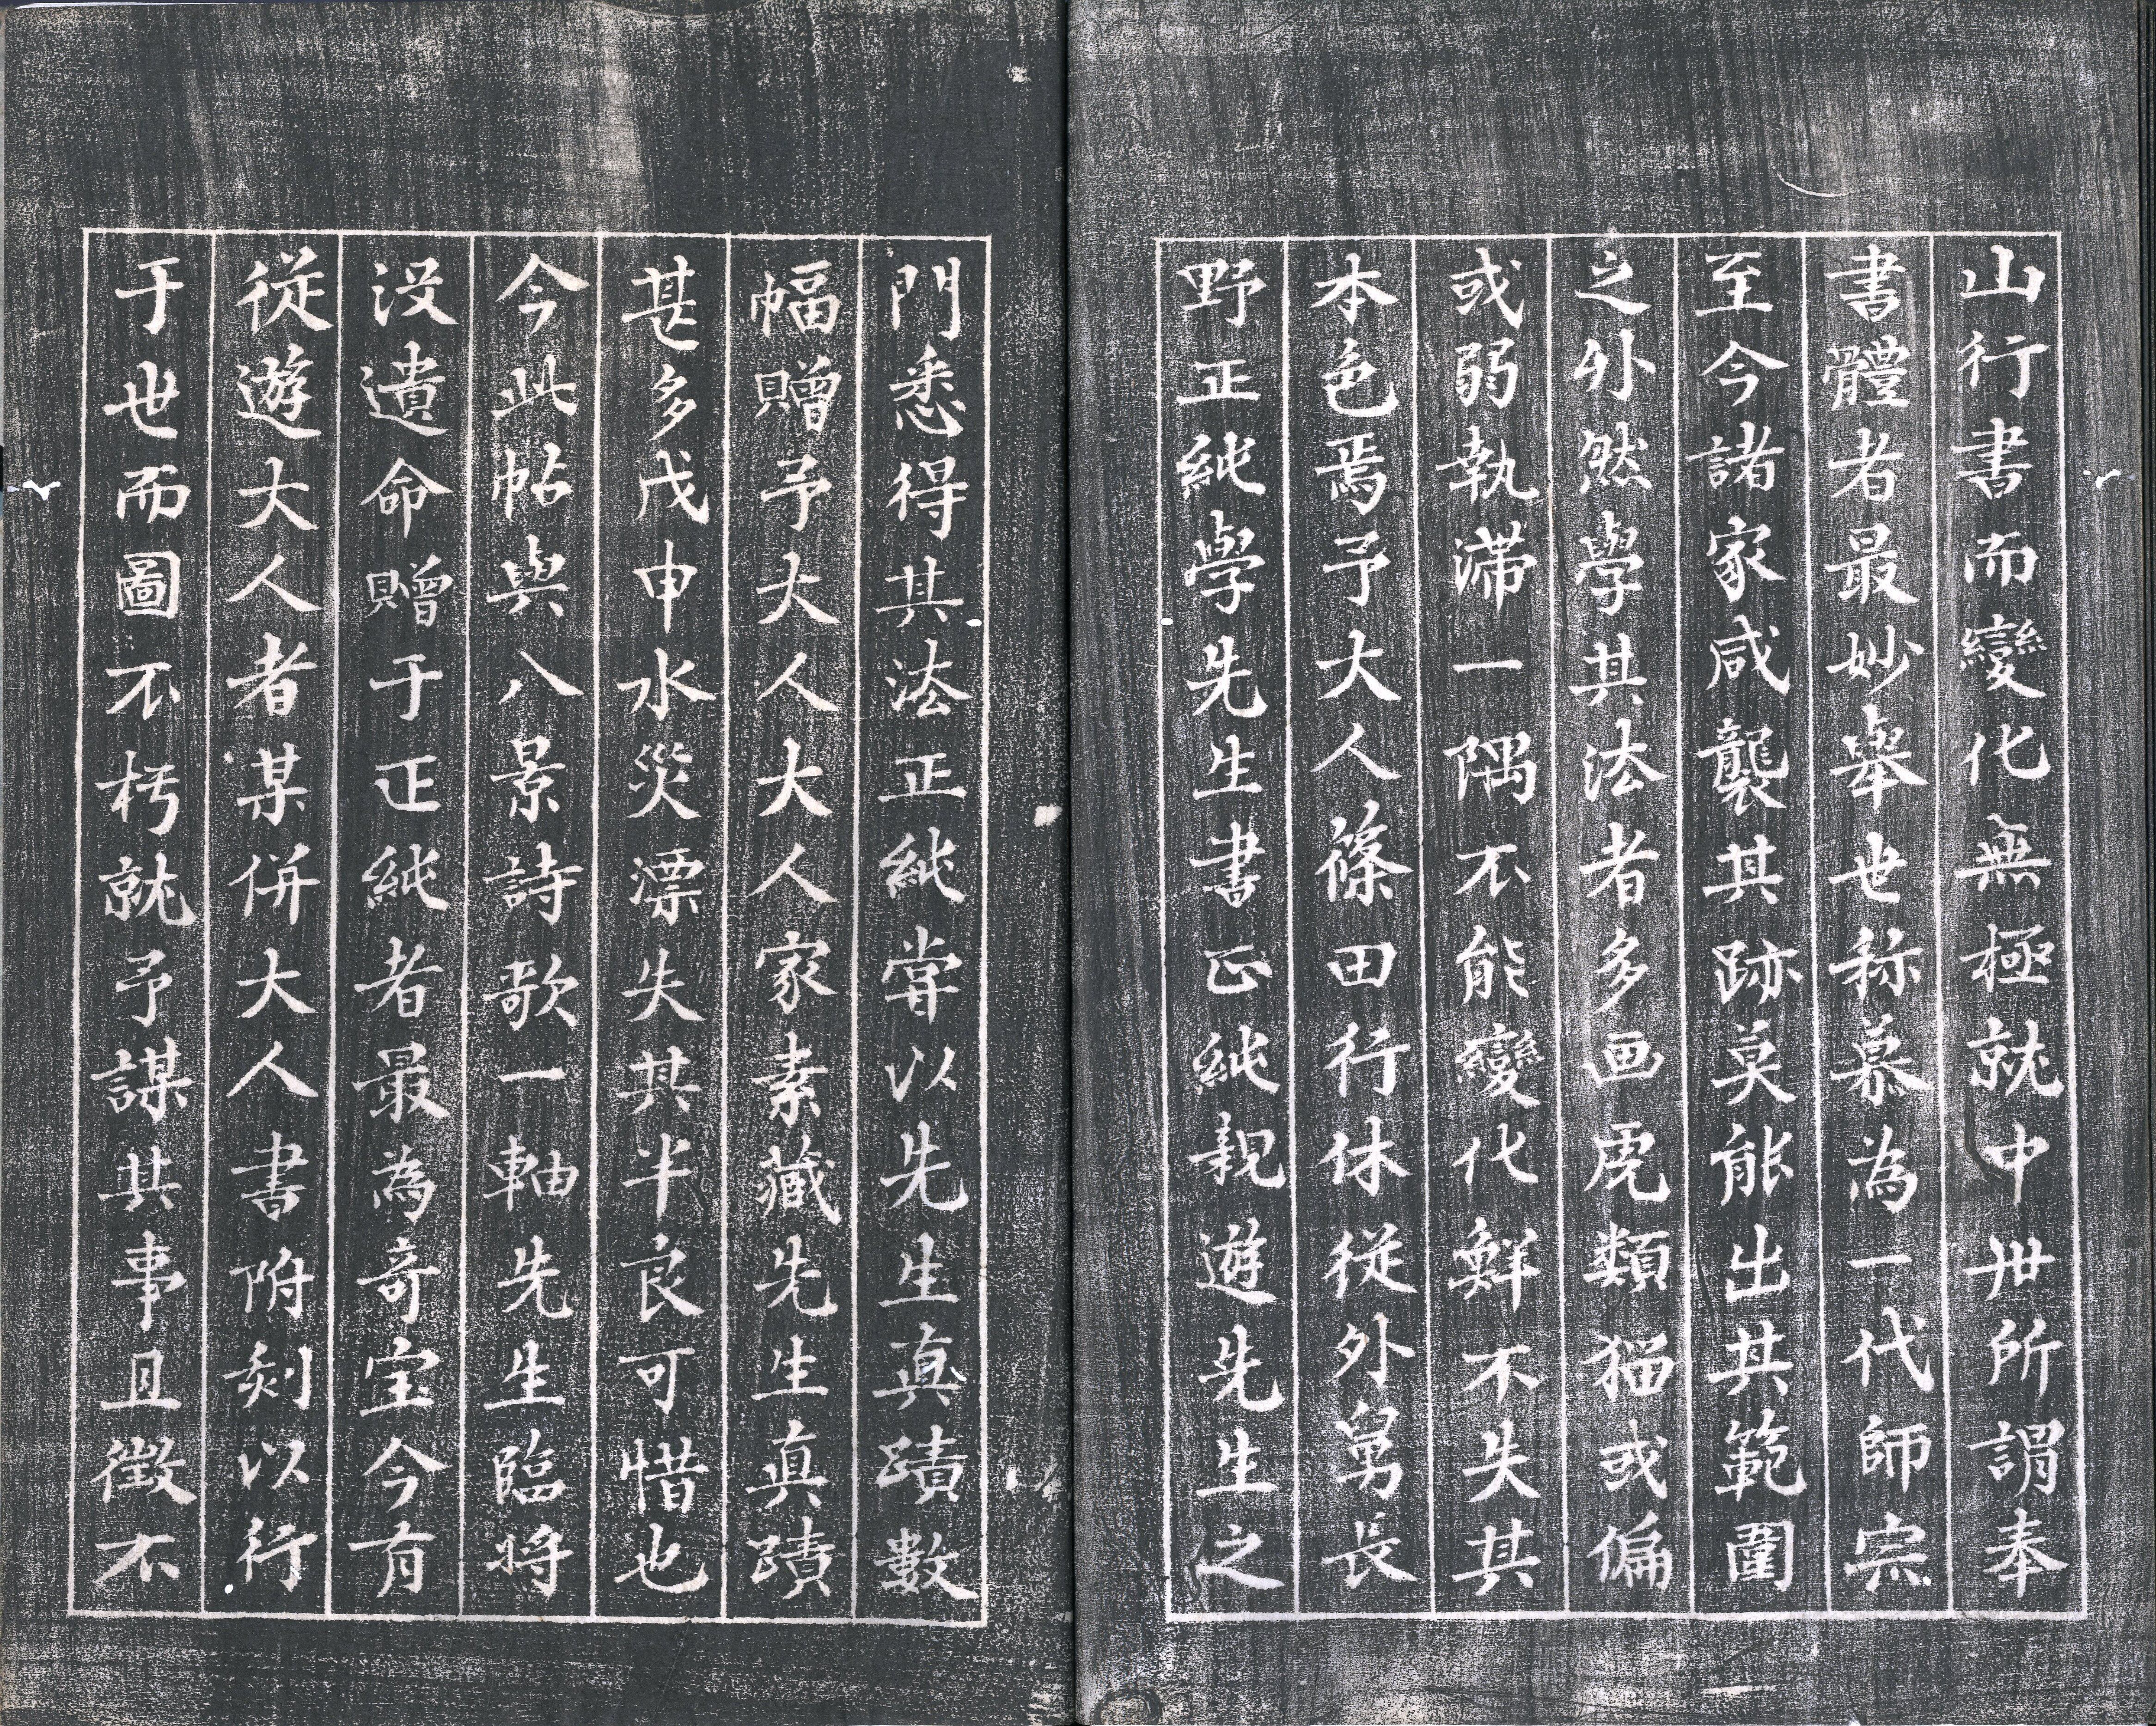 山行書而變化無極就中世所謂奉
書體者最妙舉世称慕為一代師宗
至今諸家咸襲其跡莫能出其範圍
之外然學其法者多画虎類猫或偏
或弱執滞一隅不能變化鮮不失其
本色焉予大人篠田行休従外舅長
野正純學先生書正純親遊先生之
門悉得其法正純嘗以先生真蹟數
幅贈予大人大人家素藏先生真蹟
甚多戊申水災漂失其半良可惜也
今此帖與八景詩歌一軸先生臨将
没遺命贈于正純者最為奇宝今有
従遊大人者某併大人書附刻以行
于世而圖不朽就予謀其事且徴不